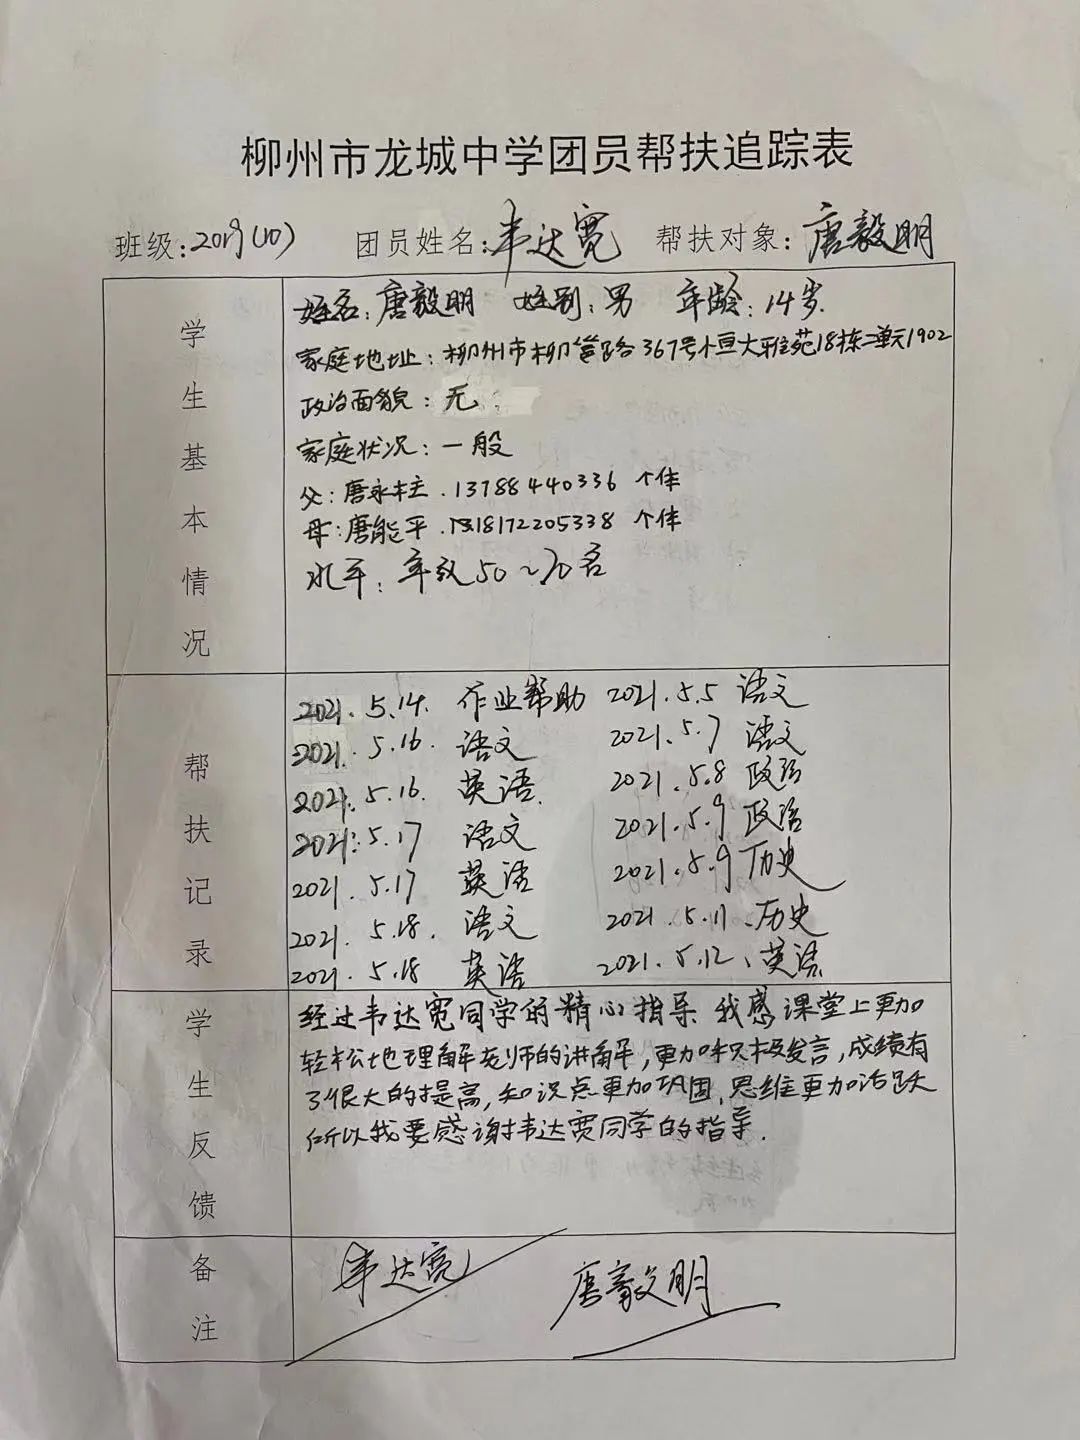 柳州市龙城中学团员帮扶追踪表
班级:2019(10) 团员姓名:韦达宽 帮扶对象:唐毅明
学生基本情况
姓名:唐毅明 性别:男 年龄:14岁.
家庭地址:柳州市柳邕路367号恒大雅苑18栋二单元1902
政治面貌:无
家庭状况:一般
父:唐永柱.13788440336 个体
母:唐能平.18172205338 个体
水平:年级50~70名
帮扶记录
2021.5.14. 作业帮助 2021.5.5 语文
2021.5.16. 语文 2021.5.7 语文
2021.5.16. 英语. 2021.5.8 政治
2021.5.17 语文 2021.5.9 政治
2021.5.17 英语 2021.5.9 历史
2021.5.18. 语文 2021.5.11、历史
2021.5.18 英语 2021.5.12、英语
学生反馈
经过韦达宽同学的精心指导.我感课堂上更加
轻松地理解老师的讲解,更加积极发言,成绩有
了很大的提高,知识点更加巩固,思维更加活跃
所以我要感谢韦达宽同学的指导.
备注
韦达宽 唐毅明